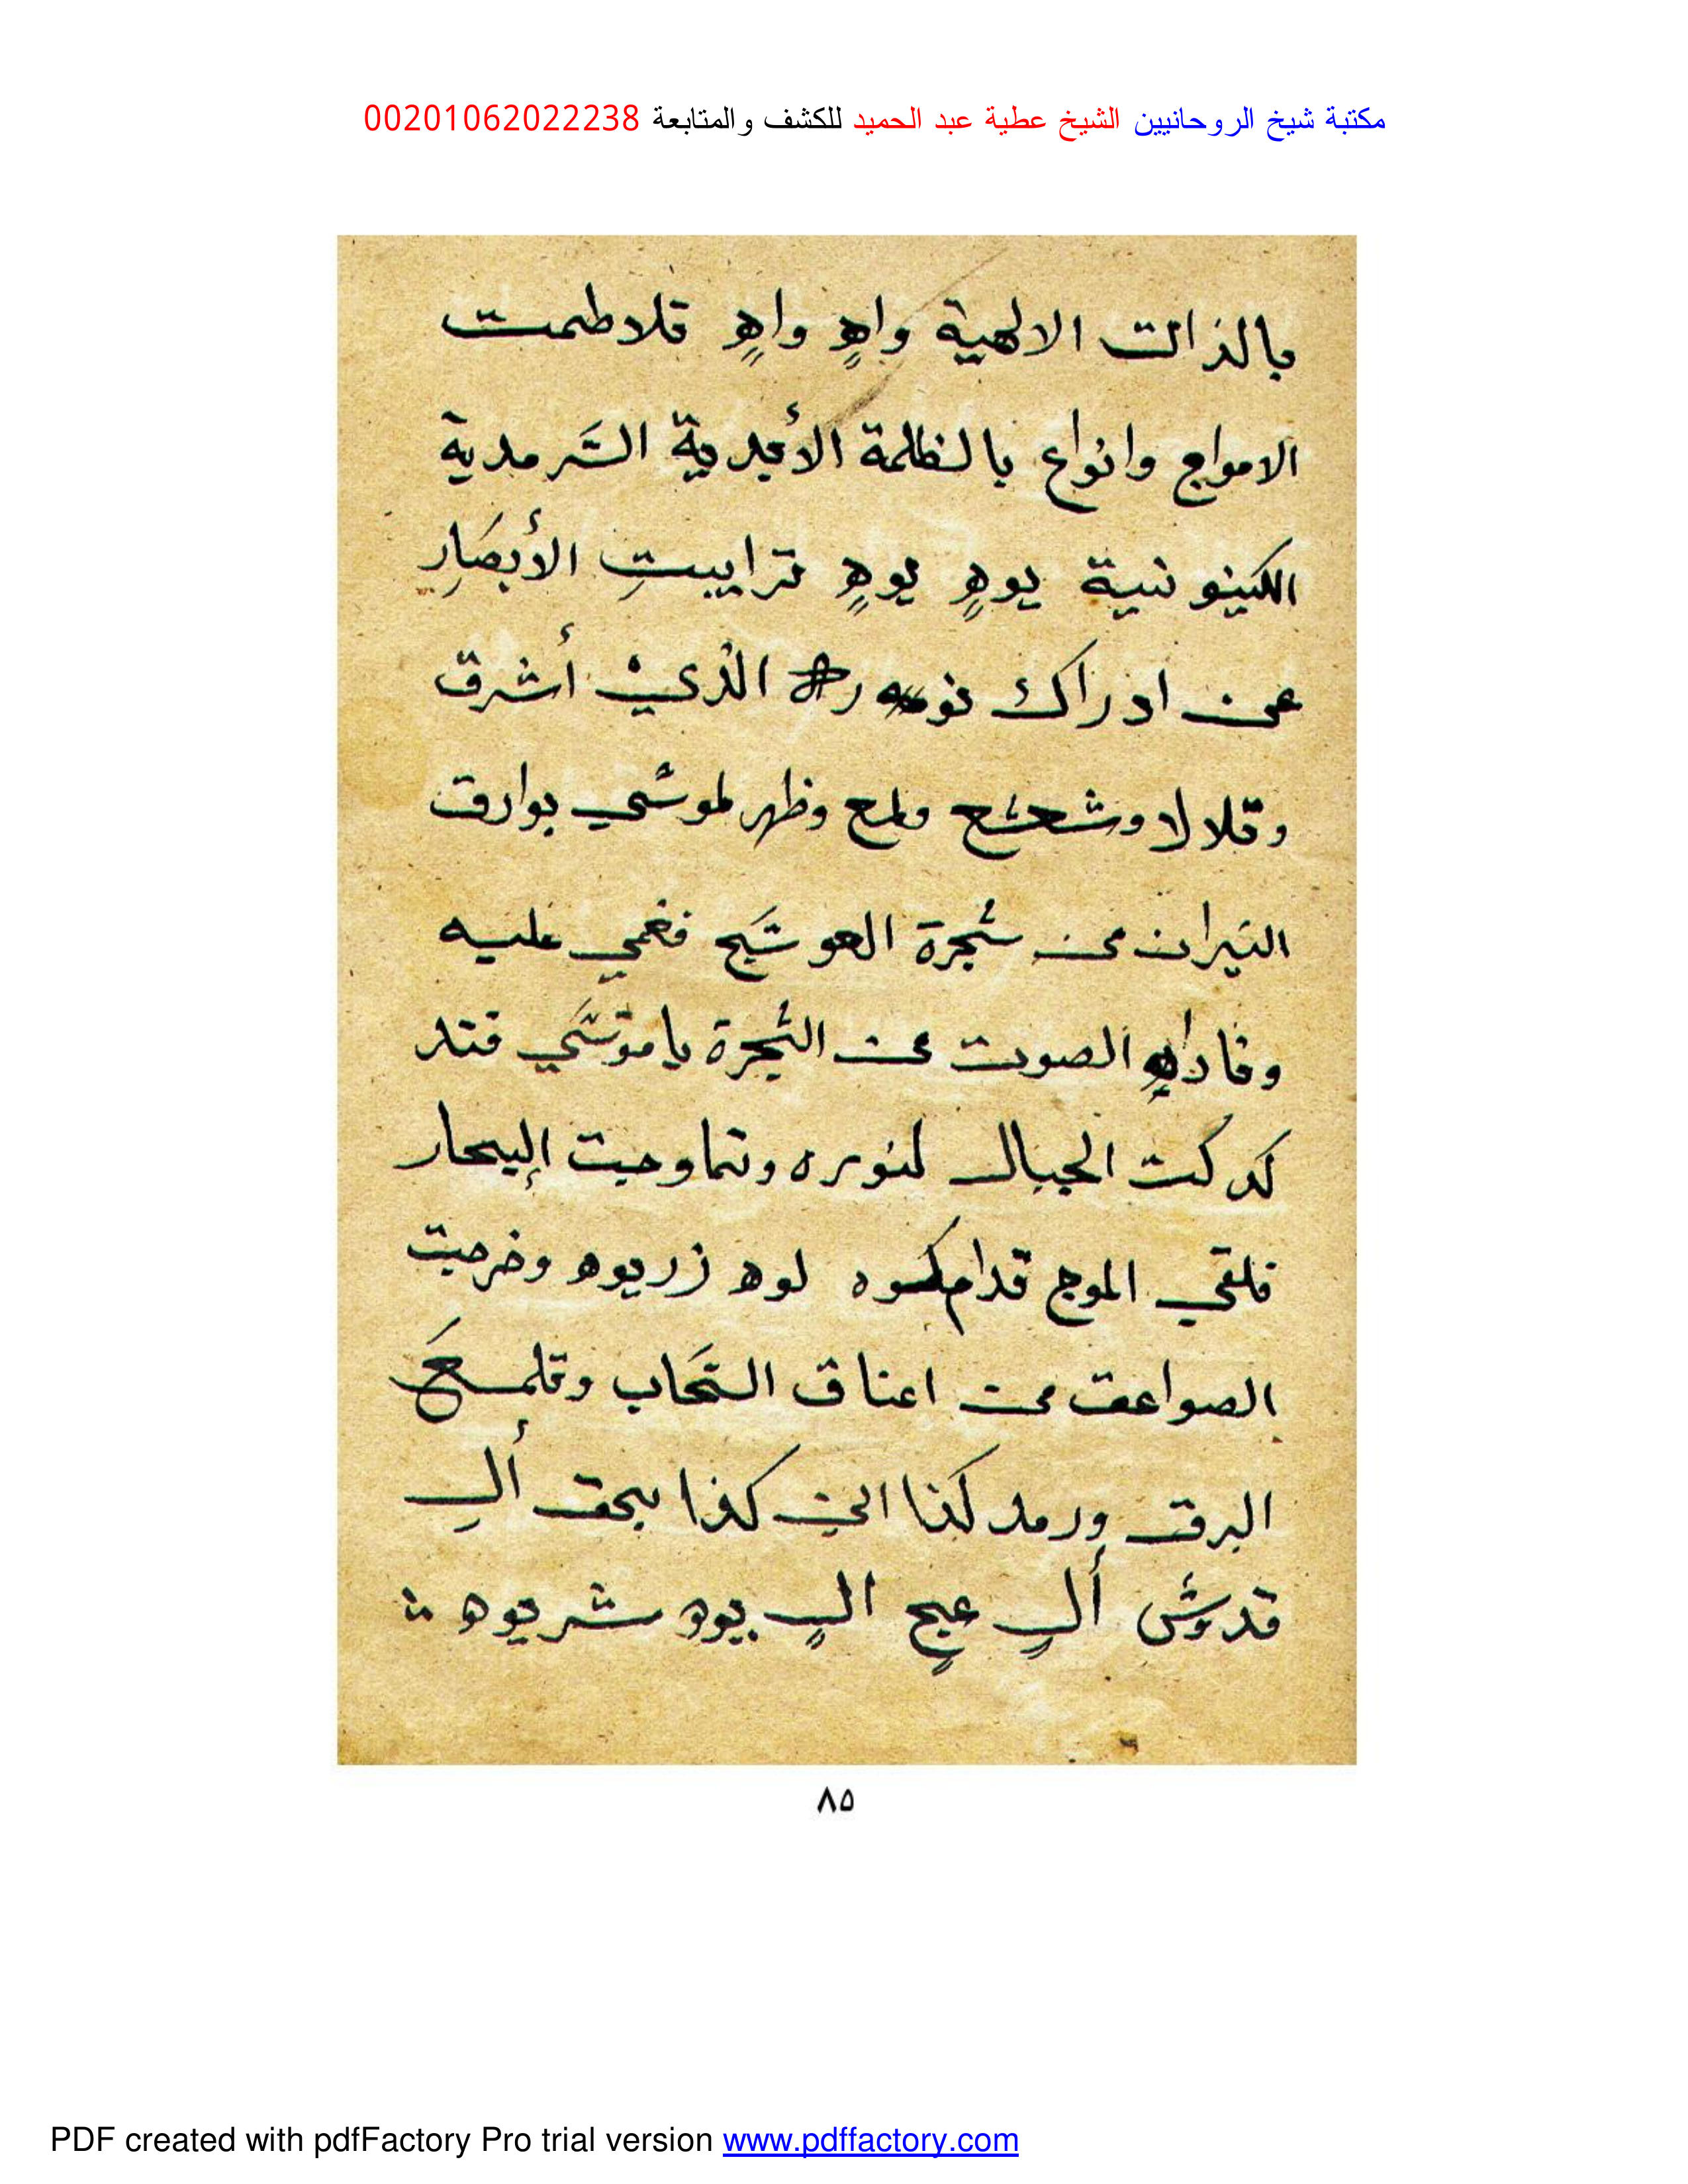 مكتبة شيخ الروحانيين الشيخ عطية عبد الحميد للكشف والمتابعة 00201062022238
بالذالت الالهية واهٍ واهٍ قلاطمت
الامواج وانواع بالظلمة الأبدية السَّرمدية
الكينونية يوهٍ يوهٍ ترايبتِ الأبصَارِ
عن ادراك الذي أشرق
وقلالا وشعشع ولمع وظهر لموسَى بوارق
النيران من شجرة العوسَج فغمي عليه
وناداه الصوت من الشجرة ياموسَى فتد
كدكت الجبال لنوره وتماوجت البحار
فلقى الموج قدام لوه زريوه وخرجت
الصواعق من اعناق السَّحاب وقلمع
البرق ورمد كذا الى كذا بحق ألِ
قدوش ألٍ عجٍ الٍ يوه شريوه
٨٥
PDF created with pdfFactory Pro trial version www.pdffactory.com